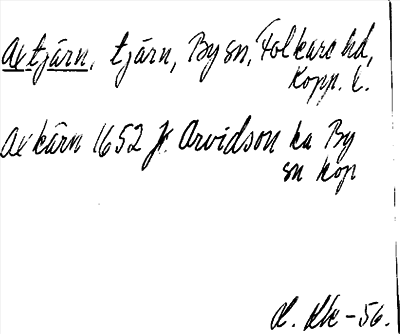 Axtjärn, tjärn, By sn, Folkare hd,
Kopp. l.
Axkärn 1652 Jt Arvidson ka By
sn Kop